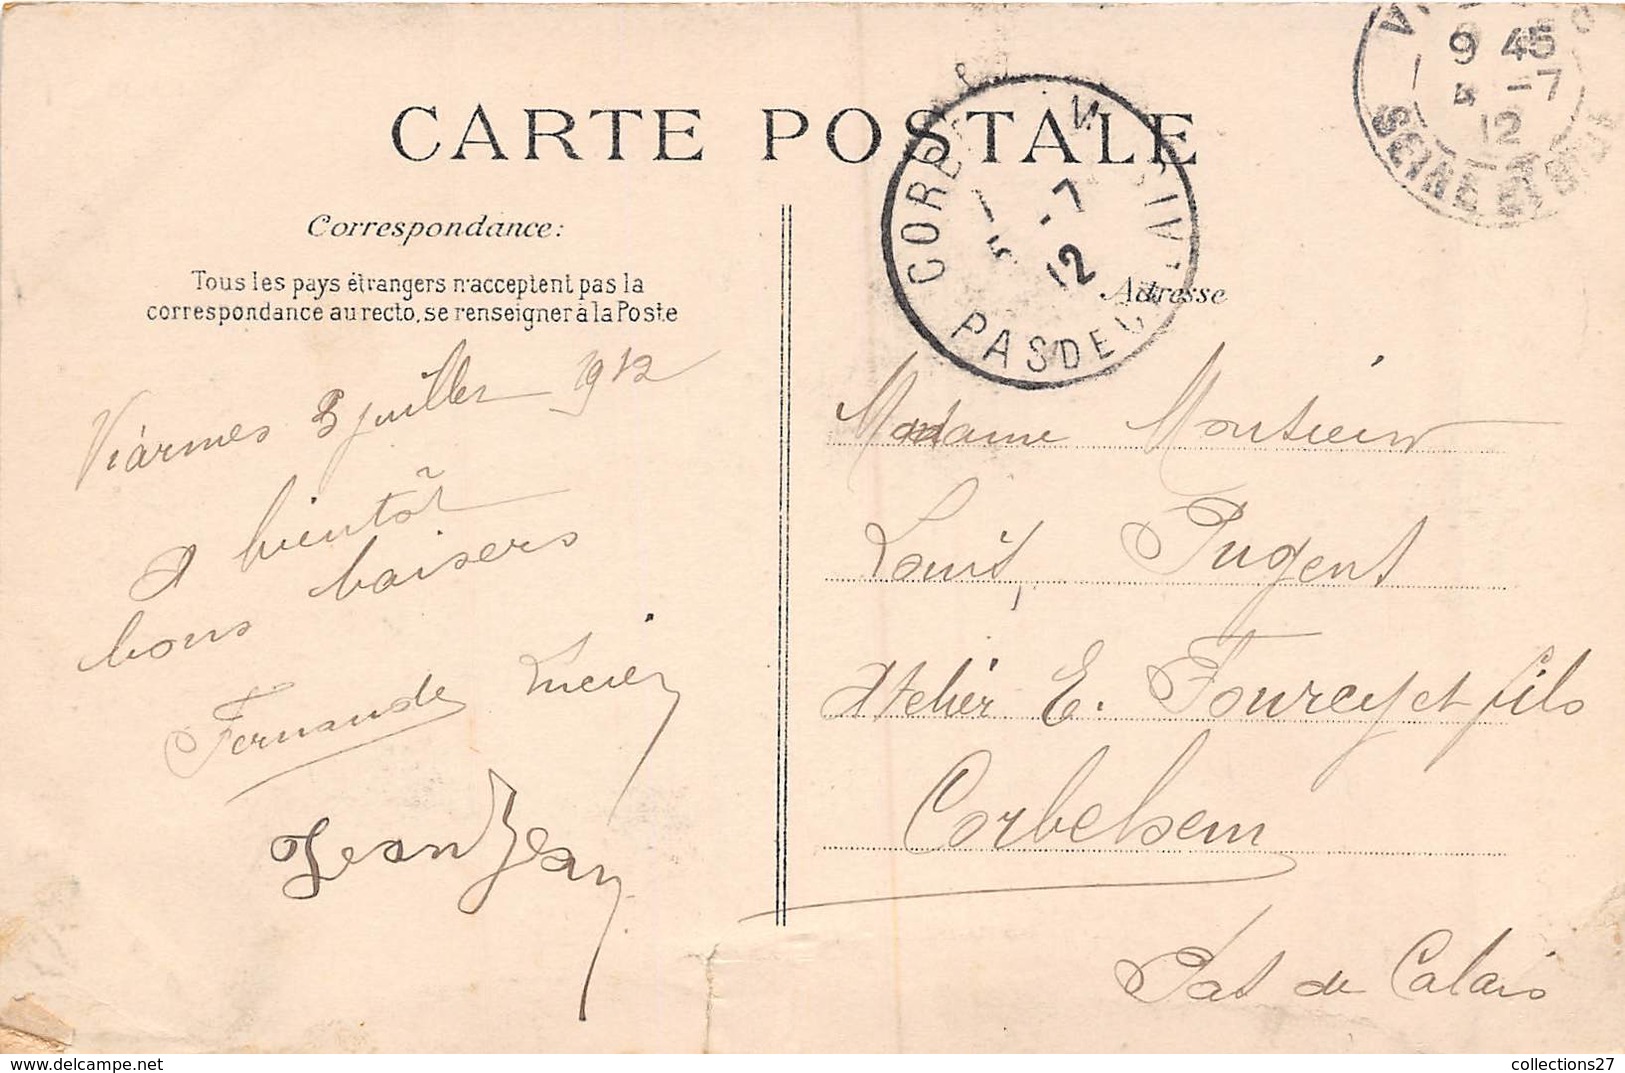 CARTE POSTALE
Correspondance:
Tous les pays étrangers n'acceptent pas la
correspondance au recto, se renseigner à la Poste
Viarmes 3 juillet 1912
A bientôt
bons baisers
Fernande Lucien
Jean
Adresse
9 45
-7
12
SEINE ET OISE
CORBE
5 -7
12
PAS DE CALAIS
Madame Monsieur
Louis, Pugent
Atelier E. Fourcy et fils
Corbehem
Pas de Calais
collections27